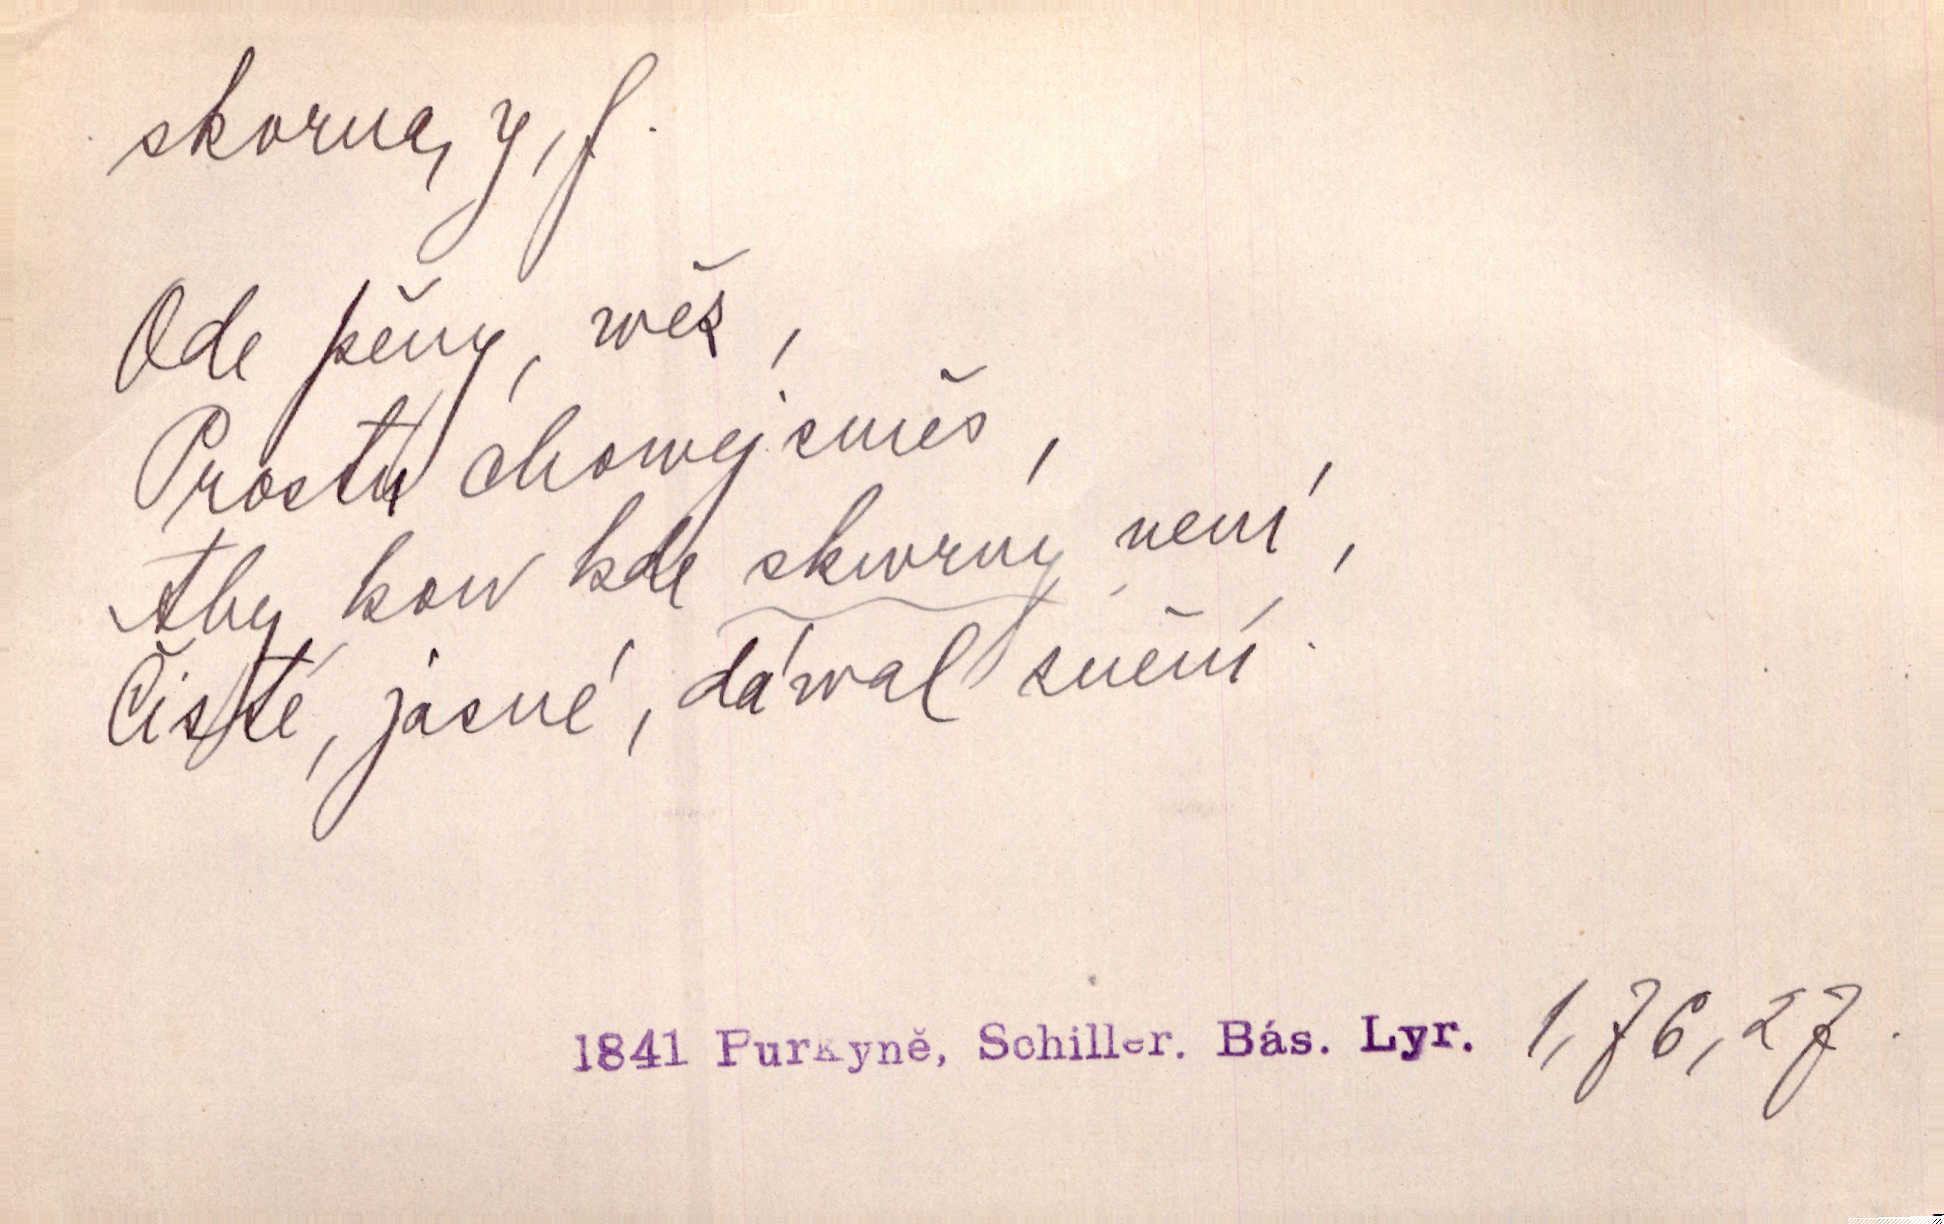 skvrna, y, f.
Ode pěny, wěz,
Prostu chowej směs,
Aby kow kde skwrny není,
Čisté, jasné, dáwal znění.
1841 Purkyně, Schiller. Bás. Lyr. 1, 76, 27.